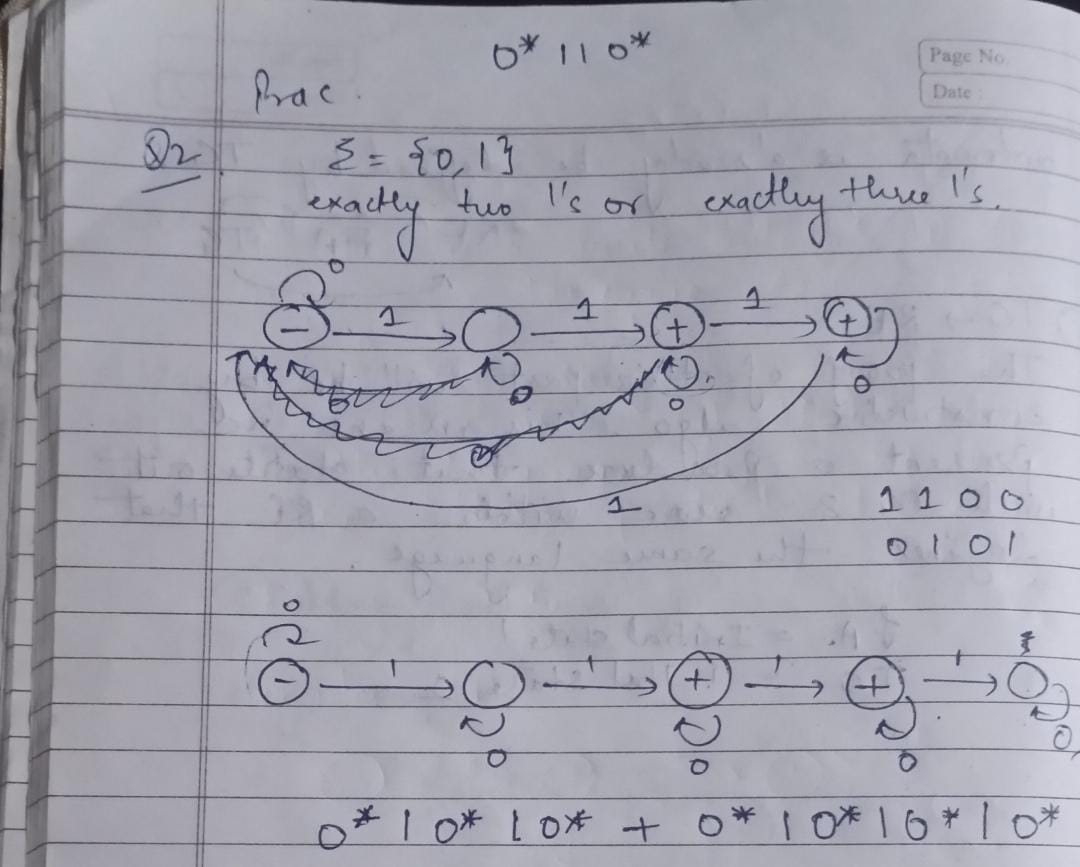 0* 110*
Page No.
Prac.
Date :
Q2 Σ = {0, 1}
exactly two 1's or exactly three 1's.
0
- 1 1 + 1 +
0 0 0 0
0
1
1100
0101
0
- 1 1 + 1 + 1
0 0 0 0
0* 1 0* 1 0* + 0* 1 0* 1 0* 1 0*